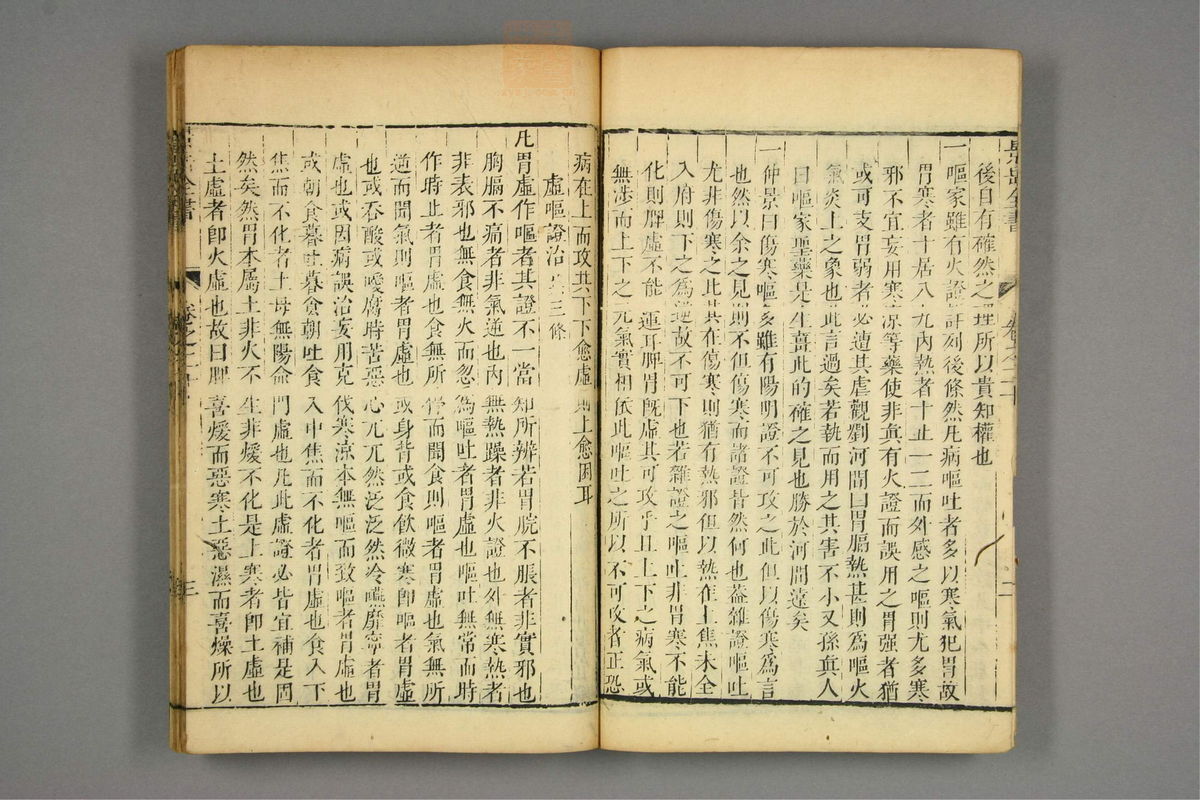 後自有確然之理所以貴知權也
一嘔家雖有火證詳列後條然凡病嘔吐者多以寒氣犯胃故
胃寒者十居八九內熱者十止一二而外感之嘔則尤多寒
邪不宜妄用寒涼等藥使非眞有火證而誤用之胃强者猶
或可支胃弱者必遭其虐觀劉河間曰胃膈熱甚則爲嘔火
氣炎上之象也此言過矣若執而用之其害不小又孫眞人
曰嘔家聖藥是生薑此的確之見也勝於河間遠矣
一仲景曰傷寒嘔多雖有陽明證不可攻之此但以傷寒爲言
也然以余之見則不但傷寒而諸證皆然何也葢雜證嘔吐
尤非傷寒之比其在傷寒則猶有熱邪但以熱在上焦未全
入府則下之爲逆故不可下也若雜證之嘔吐非胃寒不能
化則脾虛不能運耳脾胃旣虛其可攻乎且上下之病氣或
無涉而上下之元氣實相依此嘔吐之所以不可攻者正恐
病在上而攻其下下愈虛則上愈困耳
虛嘔證治共三條
凡胃虛作嘔者其證不一當知所辨若胃脘不脹者非實邪也
胸膈不痛者非氣逆也內無熱躁者非火證也外無寒熱者
非表邪也無食無火而忽爲嘔吐者胃虛也嘔吐無常而時
作時止者胃虛也食無所停而聞食則嘔者胃虛也氣無所
逆而聞氣則嘔者胃虛也或身背或食飲微寒卽嘔者胃虛
也或吞酸或噯腐時苦惡心兀兀然泛泛然冷嚥靡寧者胃
虛也或因病誤治妄用克伐寒涼本無嘔而致嘔者胃虛也
或朝食暮吐暮食朝吐食入中焦而不化者胃虛也食入下
焦而不化者土母無陽命門虛也凡此虛證必皆宜補是固
然矣然胃本屬土非火不生非煖不化是土寒者卽土虛也
土虛者卽火虛也故曰脾喜煖而惡寒土惡濕而喜燥所以